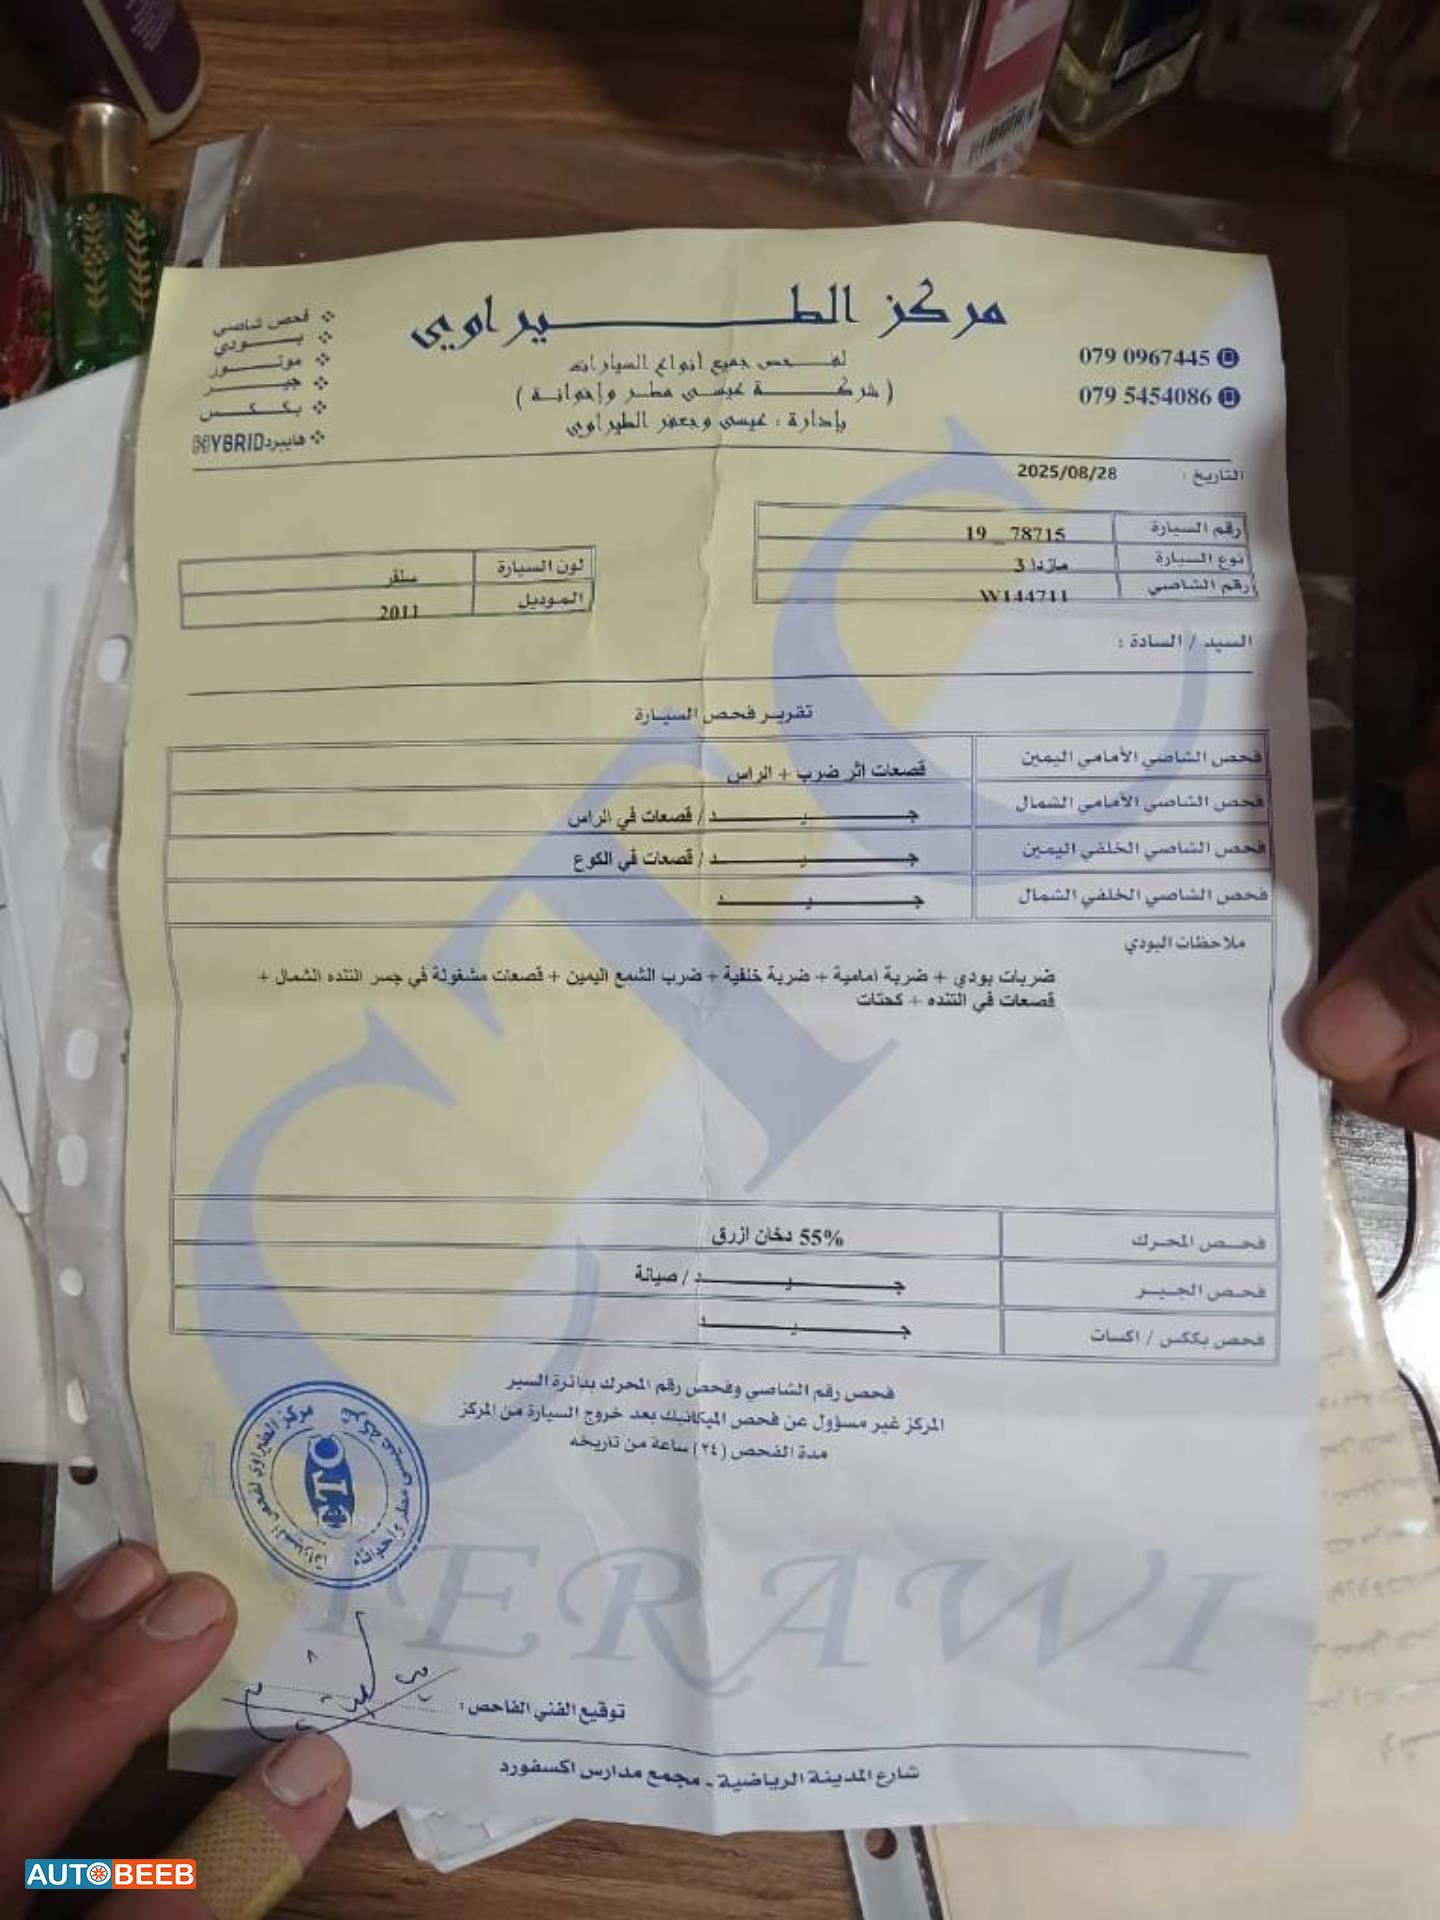 مركز الطيراوي
لفحص جميع أنواع السيارات
( شركة عيسى مطر وإخوانه )
بإدارة : عيسى وجعفر الطيراوي
079 0967445
079 5454086
فحص شاصي
بودي
موتور
جير
بككس
هايبرد HYBRID
التاريخ : 2025/08/28
رقم السيارة 19 _ 78715
نوع السيارة مازدا 3
رقم الشاصي W144711
لون السيارة سلفر
الموديل 2011
السيد / السادة :
تقرير فحص السيارة
فحص الشاصي الأمامي اليمين قصعات اثر ضرب + الراس
فحص الشاصي الأمامي الشمال جيد / قصعات في الراس
فحص الشاصي الخلفي اليمين جيد / قصعات في الكوع
فحص الشاصي الخلفي الشمال جيد
ملاحظات البودي
ضربات بودي + ضربة امامية + ضربة خلفية + ضرب الشمع اليمين + قصعات مشغولة في جسر التنده الشمال +
قصعات في التنده + كحتات
فحص المحرك 55% دخان ازرق
فحص الجير جيد / صيانة
فحص بككس / اكسات جيد
فحص رقم الشاصي وفحص رقم المحرك بدائرة السير
المركز غير مسؤول عن فحص الميكانيك بعد خروج السيارة من المركز
مدة الفحص (٢٤) ساعة من تاريخه
CTC
TERAWI
توقيع الفني الفاحص :
شارع المدينة الرياضية - مجمع مدارس اكسفورد
AUTOBEEB